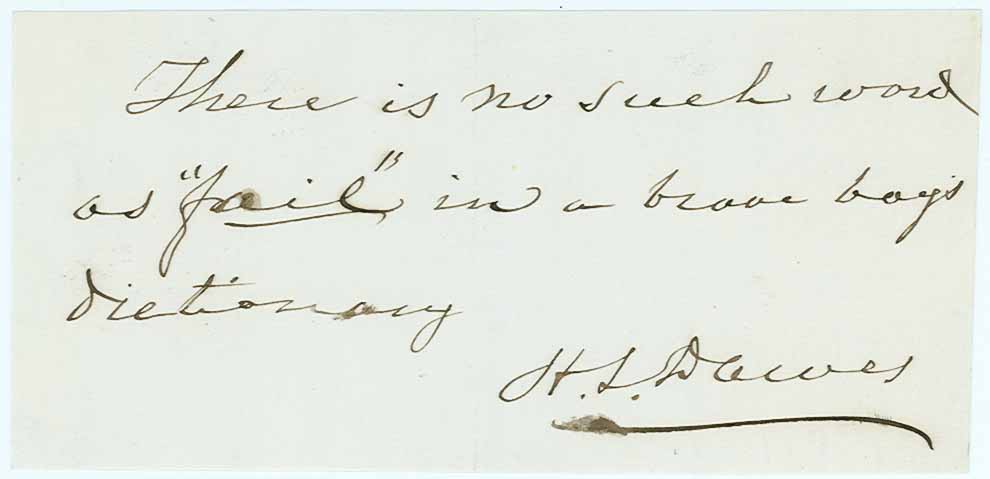 There is no such word
as "fail" in a brave boy's
dictionary
H. L. Dawes